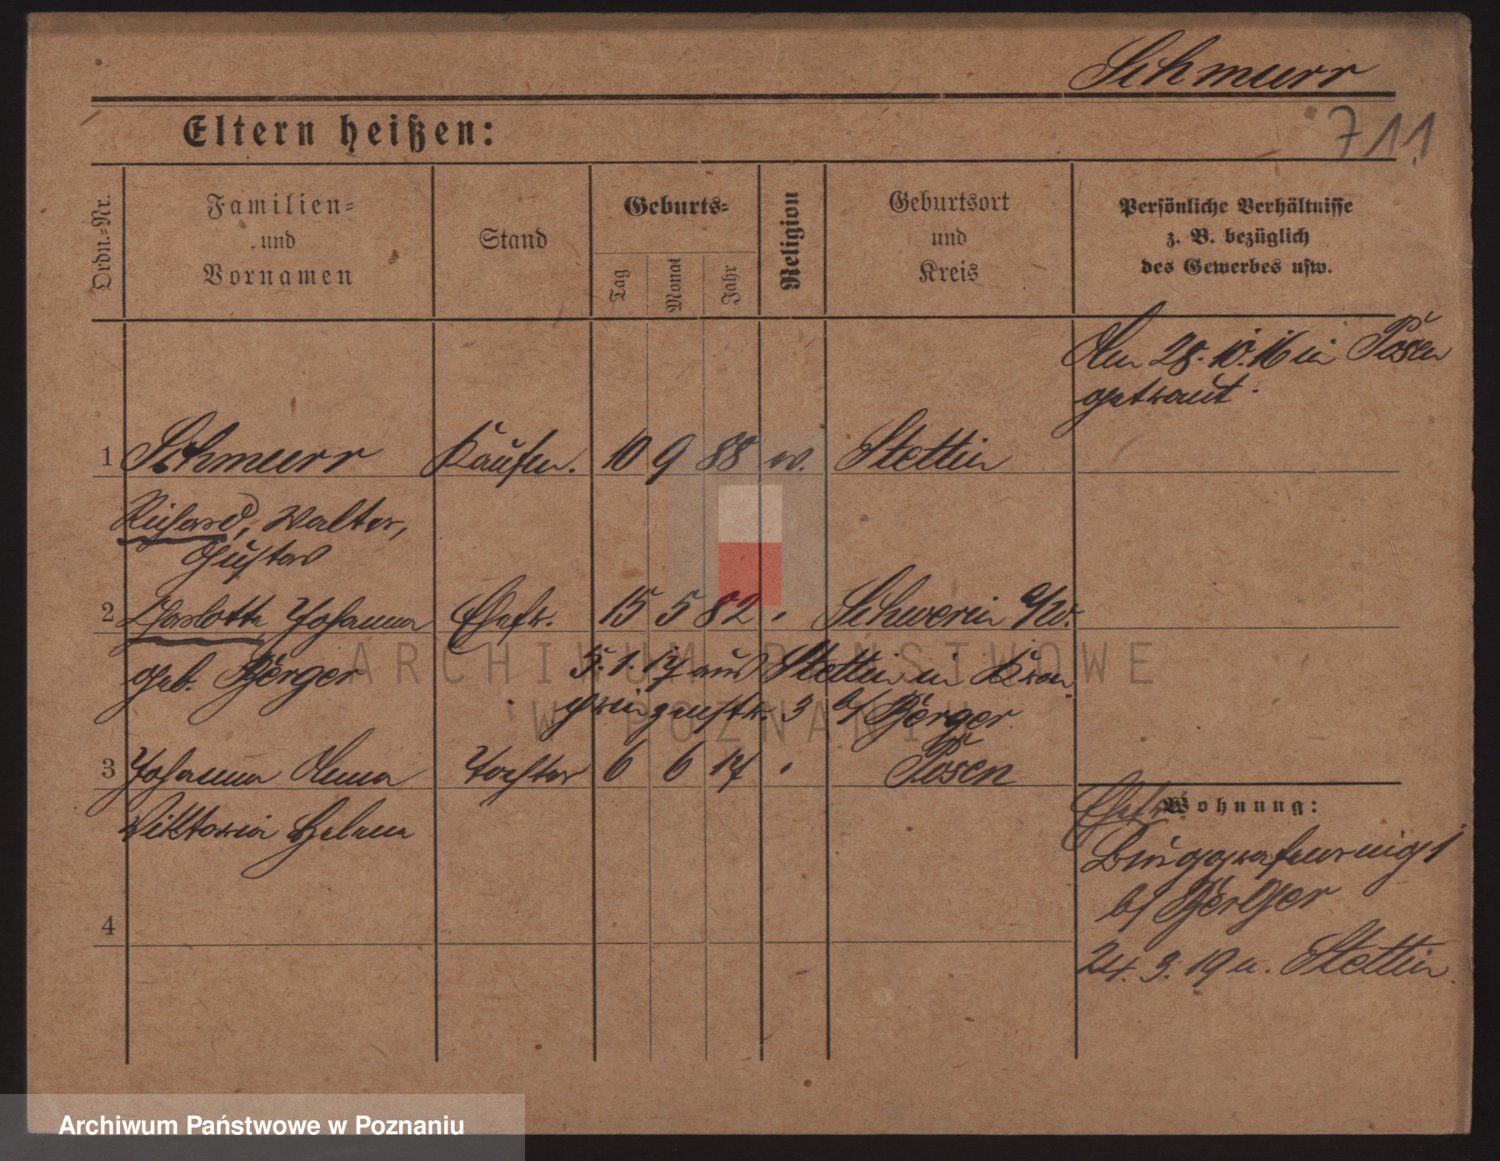 Schmurr
711
Eltern heißen:
Ordn.-Nr.
Familien-
und
Vornamen
Stand
Geburts-
Tag
Monat
Jahr
Religion
Geburtsort
und
Kreis
Persönliche Verhältnisse
z. B. bezüglich
des Gewerbes usw.
Am 28.10.16 in Posen
getraut.
1 Schmurr Kaufm. 10 9 88 ev. Stettin
Richard, Walter,
Gustav
2 Charlotte Johanna Ehefr. 15 5 82 " Schwerin a/W.
geb. Berger
5.1.17 aus Stettin in Kron
prinzenstr. 3 b/ Berger
3 Johanna Anna Tochter 6 6 17 " Posen
Viktoria Helene
Wohnung:
Ehefr.
b/ Berger
24.3.19 n. Stettin
4
ARCHIWUM PAŃSTWOWE
W POZNANIU
Archiwum Państwowe w Poznaniu